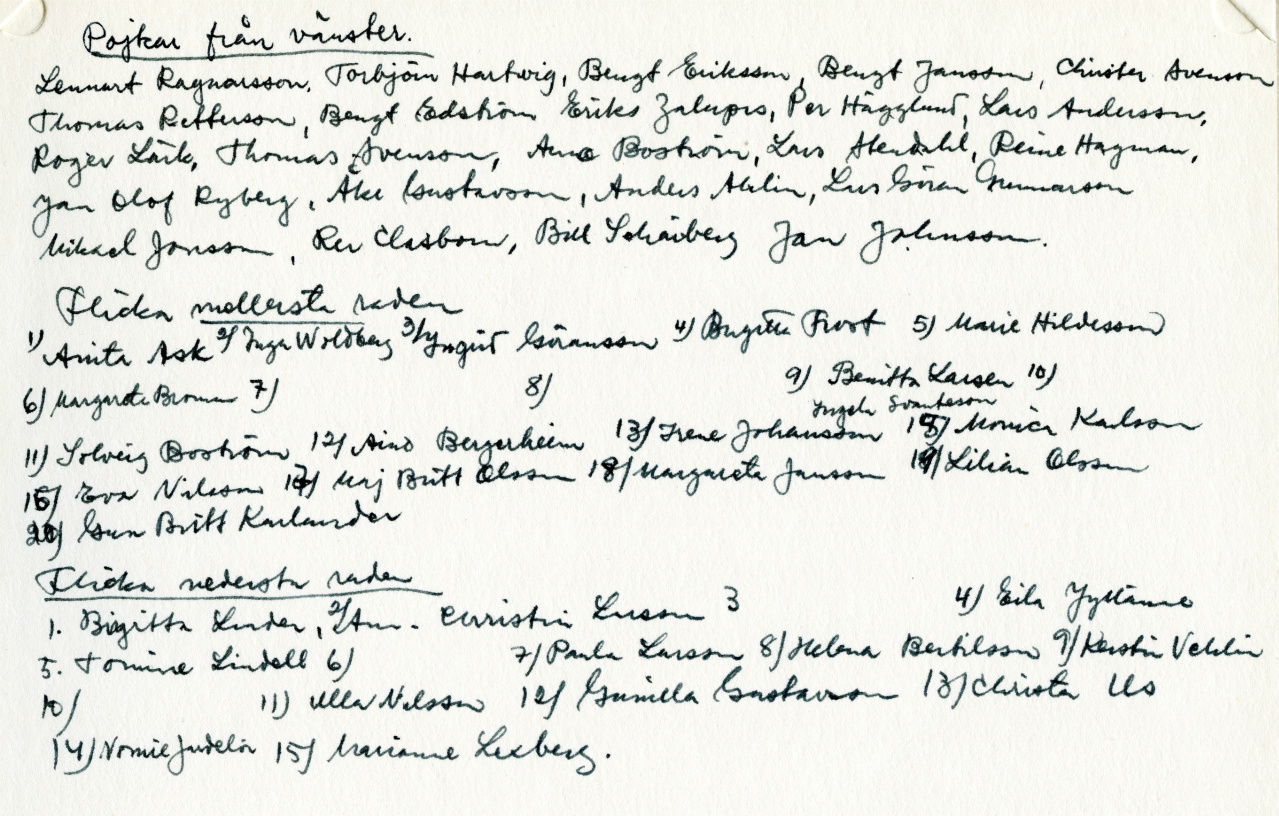 Pojkar från vänster.
Lennart Ragnarsson, Torbjörn Hartwig, Bengt Eriksson, Bengt Jansson, Christer Svenson
Thomas Petterson, Bengt Edström Eriks Zalupis, Per Hägglund, Lars Andersson,
Roger Lärk, Thomas Svenson, Arne Boström, Lars Stendahl, Reine Hagman,
Jan Olof Ryberg, Åke Gustavsson, Anders Ahlin, Lars Göran Gunnarson
Mikael Jonsson, Per Clasborn, Bill Jan Johnsson.
Flicka mellersta raden
1) Anita Ask 2) Inga Woldberg 3) Yngrid Göransson 4) Birgitta Frost 5) Marie Hildesson
6) Margareta Broman 7) 8) 9) Benitta Larsen 10)
Ingela Svanteson
11) Solveig Boström 12) Aino Bergerheim 13) Irene Johansson 15) Monica Karlsson
16) Eva Nilsson 17) Maj Britt Olsson 18) Margareta Jansson 19) Lilian Olsson
20) Gun Britt Karlander
Flicka nedersta raden
1. Birgitta Linder, 2) Ann-Christin Larsson 3 4) Eila
5. Tomine Lindell 6) 7) Paula Larsson 8) Helena Bertilsson 9) Kerstin Vehlin
10) 11) Ulla Nilsson 12) Gunilla Gustavsson 13) Christa Us
14) 15) Marianne Lexberg.